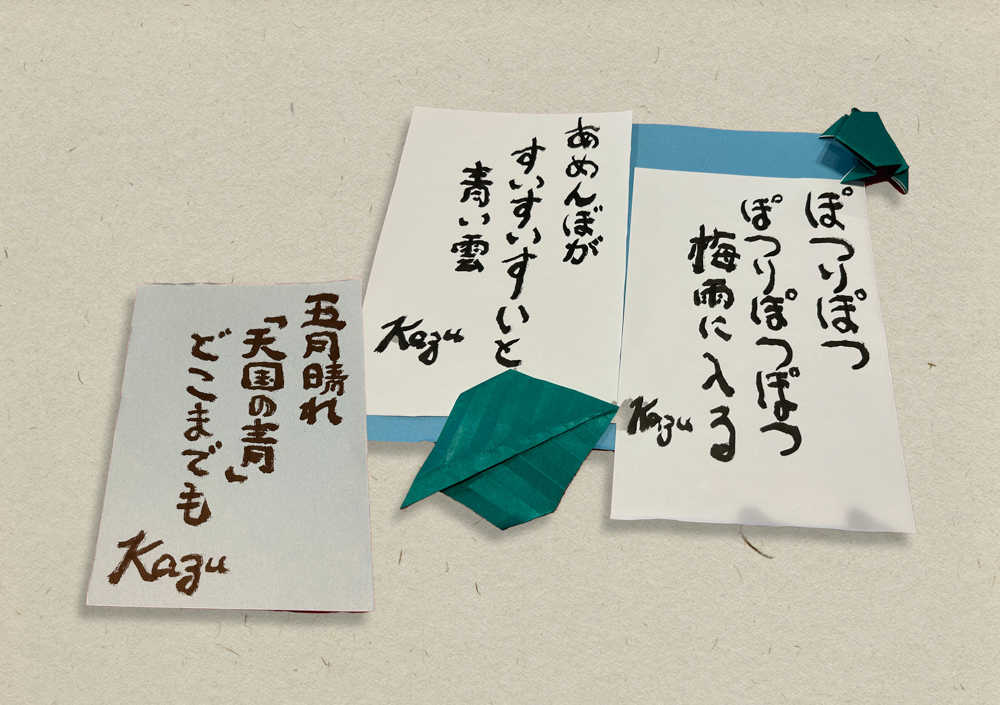 ぽつりぽつ
ぽつりぽつぽつ
梅雨に入る
Kazu
あめんぼが
すいすいすいと
青い雲
Kazu
五月晴れ
「天国の青」
どこまでも
Kazu